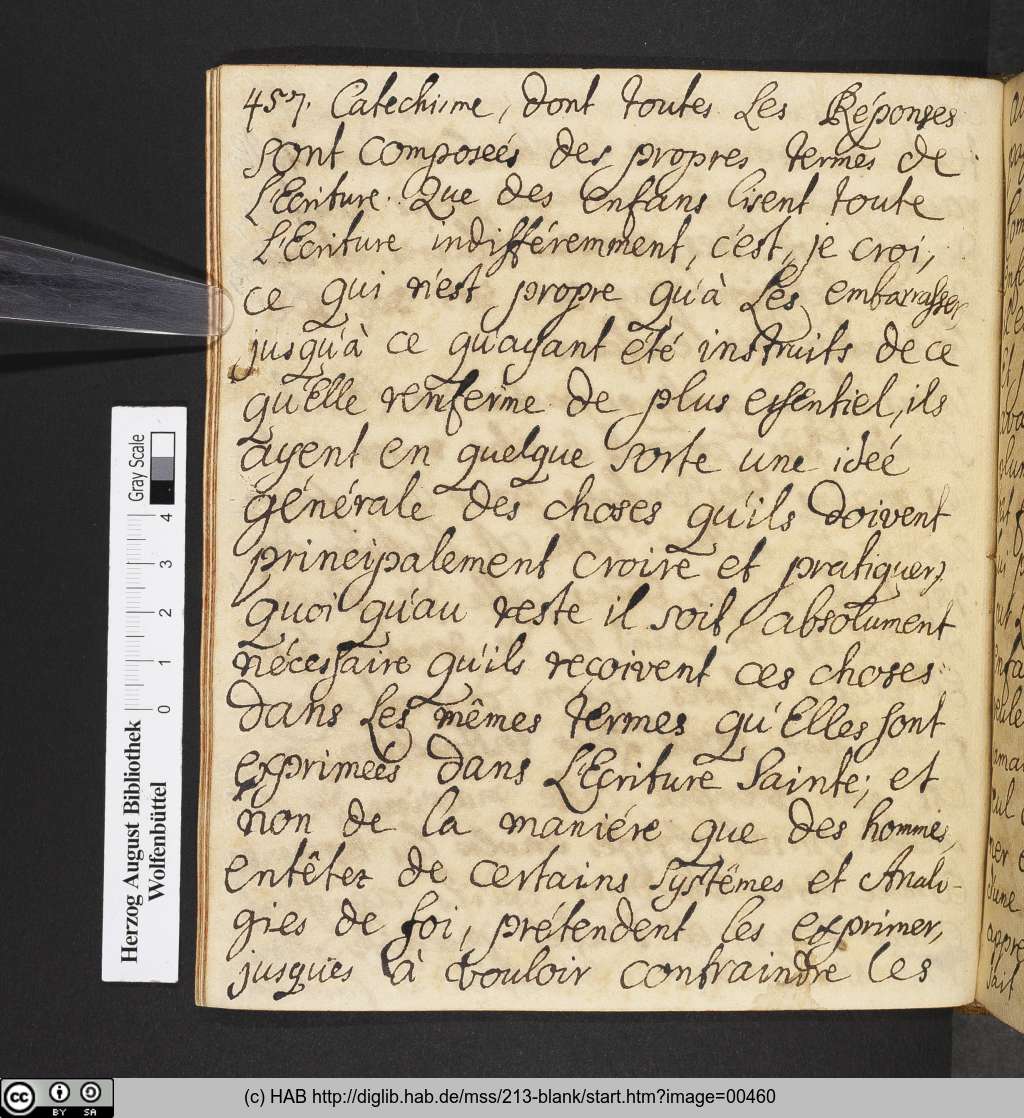 457. Catechisme, dont toutes Les Réponses
sont composeés des propres termes de
L'Ecriture. Que des Enfans lisent toute
L'Ecriture indifféremment, c'est, je croi,
ce qui n'est propre qu'à Les embarrasser,
jusqu'à ce qu'ayant été instruits de ce
qu'Elle renferme de plus essentiel, ils
ayent en quelque sorte une ideé
générale des choses qu'ils doivent
principalement croire et pratiquer,
quoi qu'au reste il soit absolument
nécessaire qu'ils reçoivent ces choses
dans Les mêmes termes qu'Elles sont
exprimeés dans L'Ecriture Sainte; et
non de la maniére que des hommes,
entêtez de certains systêmes et Analo-
gies de foi, prétendent les exprimer,
jusques à vouloir contraindre les
Herzog August Bibliothek
Wolfenbüttel
0 1 2 3 4
Gray Scale
cc BY SA
(c) HAB http://diglib.hab.de/mss/213-blank/start.htm?image=00460